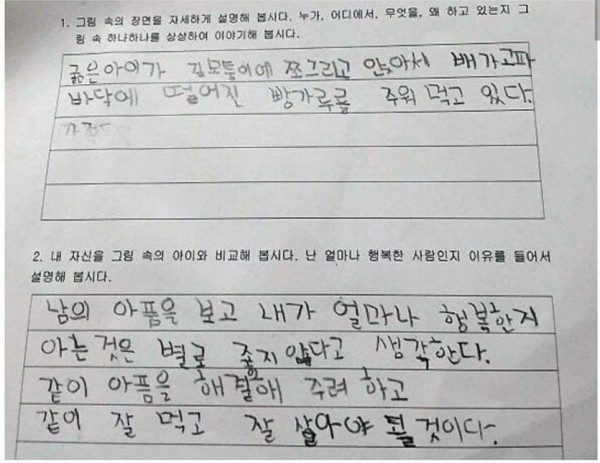 1. 그림 속의 장면을 자세하게 설명해 봅시다. 누가, 어디에서, 무엇을, 왜 하고 있는지 그
림 속 하나하나를 상상하여 이야기해 봅시다.
굶은아이가 길모퉁이에 쪼그리고 앉아서 배가고파
바닥에 떨어진 빵가루를 주워 먹고 있다.
2. 내 자신을 그림 속의 아이와 비교해 봅시다. 난 얼마나 행복한 사람인지 이유를 들어서
설명해 봅시다.
남의 아픔을 보고 내가 얼마나 행복한지
아는것은 별로 좋지 않다고 생각한다.
같이 아픔을 해결해 주려 하고
같이 잘 먹고 잘 살아야 될 것이다.